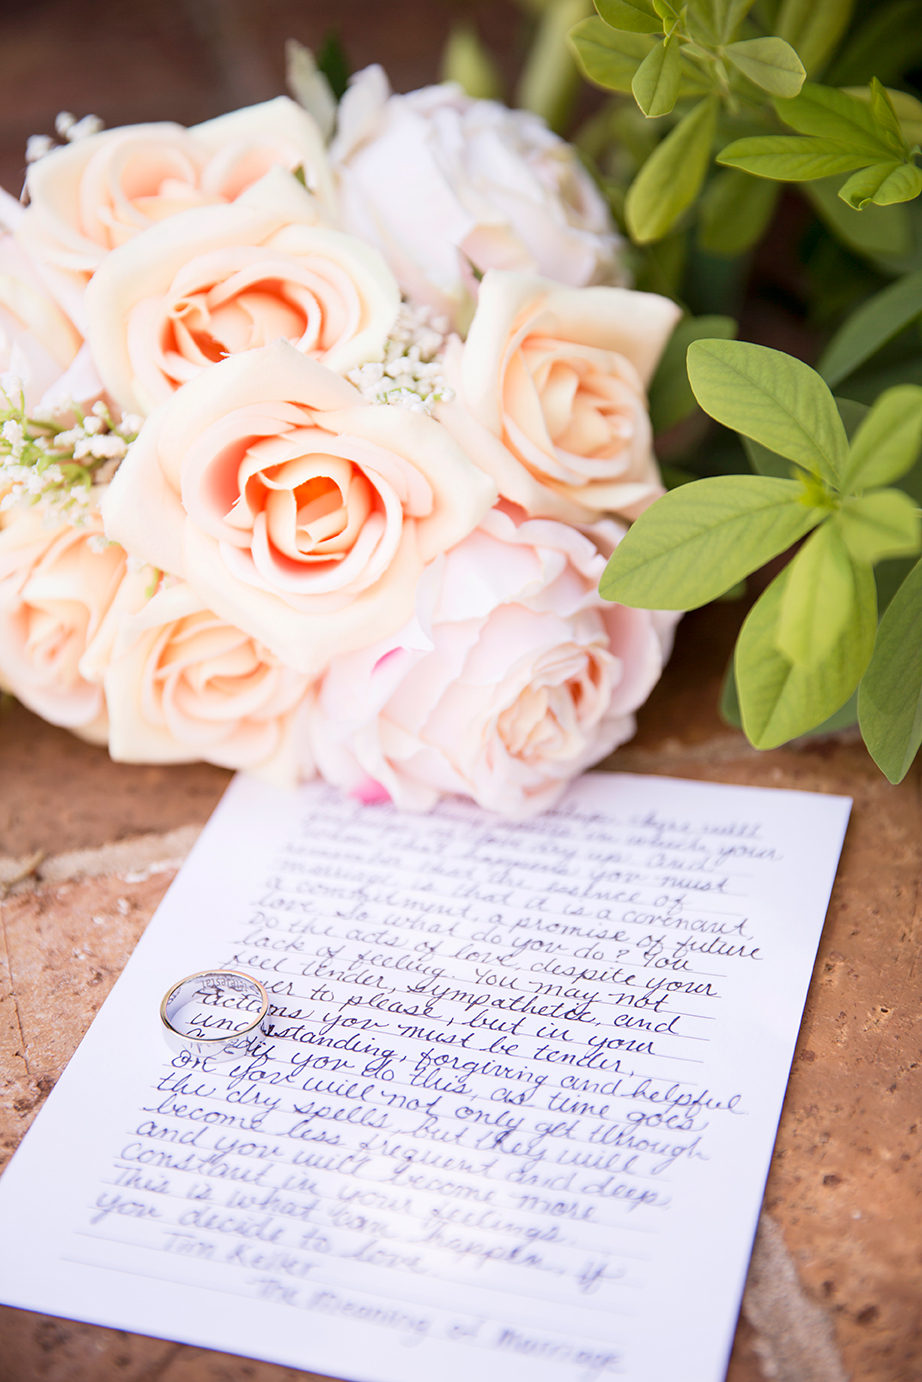 there will
in which your
love dry up. And
when that happens you must
remember that the essence of
marriage is that it is a covenant,
a commitment, a promise of future
love. So what do you do? You
Do the acts of love, despite your
lack of feeling. You may not
feel tender, sympathetic, and
to please, but in your
actions you must be tender,
understanding, forgiving and helpful
if you do this, as time goes
on you will not only get through
the dry spells, but they will
become less frequent and deep,
and you will become more
constant in your feelings.
This is what can happen if
you decide to love.
Tim Keller
The Meaning of Marriage